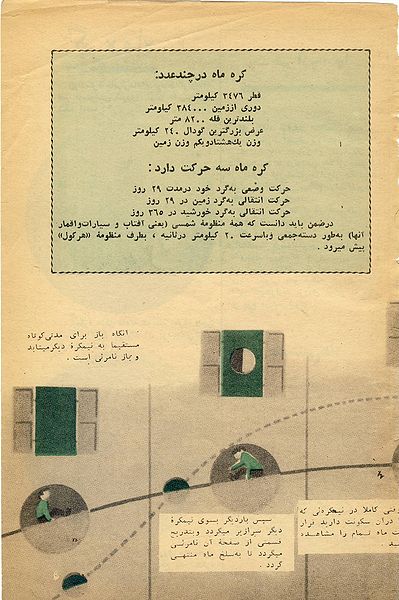 کره ماه در چند عدد:
قطر ۳۴۷۶ کیلومتر
دوری از زمین ۳۸۴۰۰۰ کیلومتر
بلندترین قله ۸۲۰۰ متر
عرض بزرگترین گودال ۲۴۰ کیلومتر
وزن یک‌هشتادویکم وزن زمین
کره ماه سه حرکت دارد:
حرکت وضعی به‌گرد خود درمدت ۲۹ روز
حرکت انتقالی به‌گرد زمین در ۲۹ روز
حرکت انتقالی به‌گرد خورشید در ۳۶۵ روز
درضمن باید دانست که همهٔ منظومهٔ شمسی (یعنی آفتاب و سیارات‌واقمار
آنها) به‌طور دسته‌جمعی وباسرعت ۲۰ کیلومتر درثانیه ، بطرف منظومهٔ «هرکول»
پیش میرود .
آنگاه باز برای مدتی‌کوتاه
مستقیما به نیمکرهٔ دیگرمیتابد
و باز نامرئی است .
سپس باردیگر بسوی نیمکرهٔ
دیگر سرازیر میگردد وبتدریج
قسمتی از صفحهٔ آن نامرئی
میگردد تا به‌سلخ ماه منتهی
گردد .
کاملا در نیمکره‌ئی که
درآن سکونت دارید قرار
ماه تمام را مشاهده